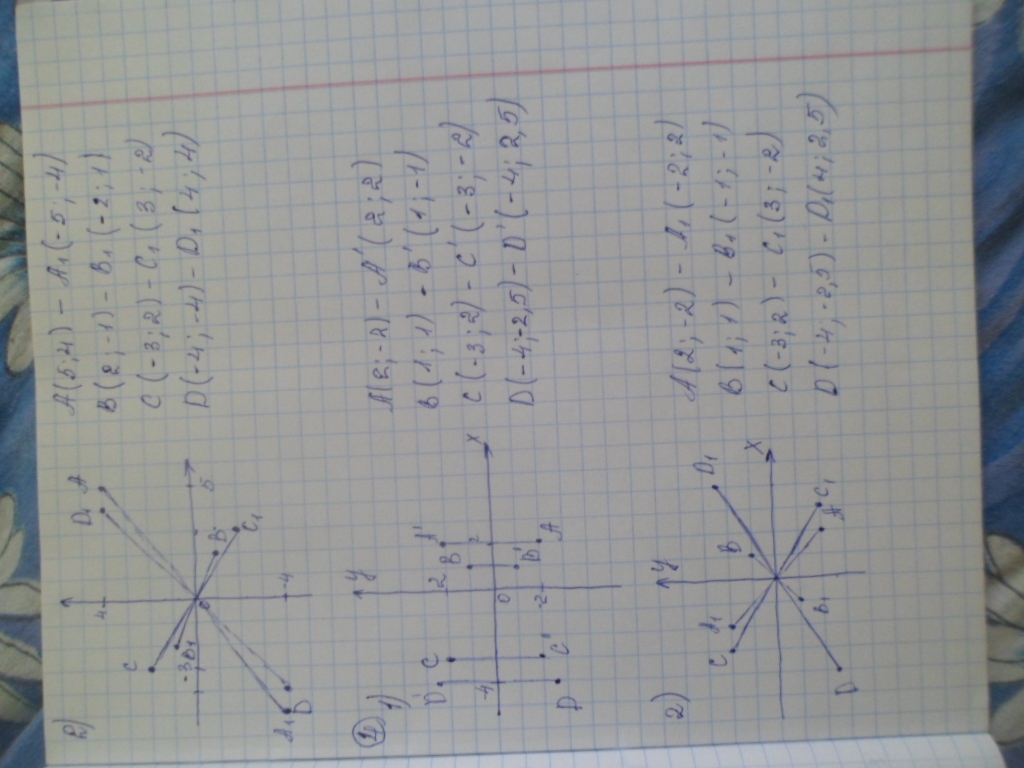 2)
C
D1 A
4
-3
B1
0
B
C1
5
-4
A1
D
A(5;4) – A1(-5;-4)
B(2;-1) – B1(-2;1)
C(-3;2) – C1(3;-2)
D(-4;-4) – D1(4;4)
1)
y
D'
C
2
B
A'
-4
0
2
x
D
C'
-2
B'
A
A(2;-2) – A'(2;2)
B(1;1) - B'(1;-1)
C(-3;2) – C'(-3;-2)
D(-4;-2,5) – D'(-4;2,5)
2)
y
C
A1
B
D1
x
D
B1
A
C1
A(2;-2) – A1(-2;2)
B(1;1) – B1(-1;-1)
C(-3;2) – C1(3;-2)
D(-4;-2,5) – D1(4;2,5)